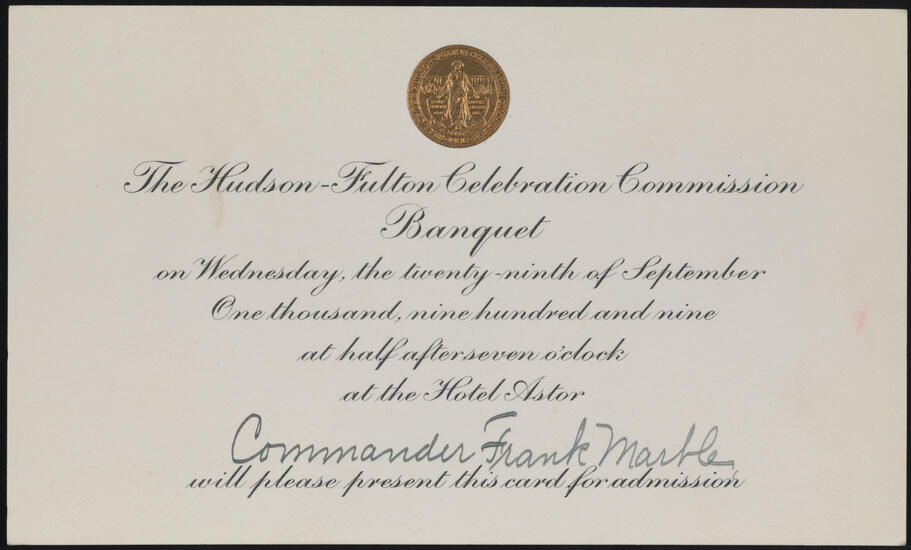 The Hudson-Fulton Celebration Commission
Banquet
on Wednesday, the twenty-ninth of September
One thousand, nine hundred and nine
at half after seven o'clock
at the Hotel Astor
Commander Frank Marble,
will please present this card for admission